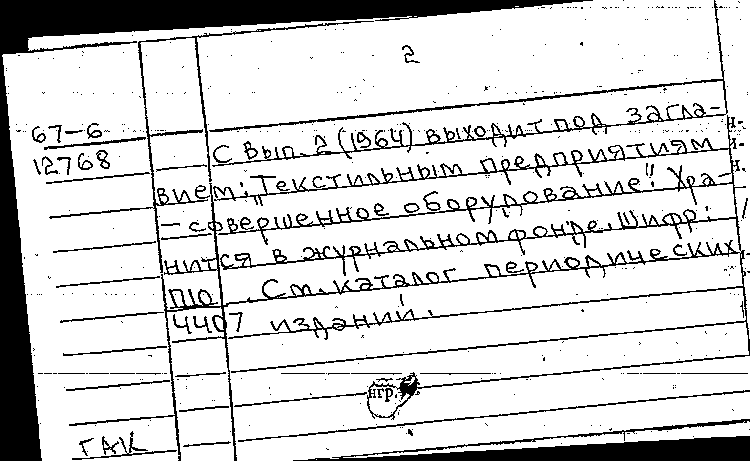 2
67-6
12768
С вып. 2 (1964) выходит под загла-
вием: „Текстильным предприятиям
- совершенное оборудование". Хра-
нится в журнальном фонде. Шифр:
П10 . См. каталог периодических
4407 изданий.
нгр.
ГАК